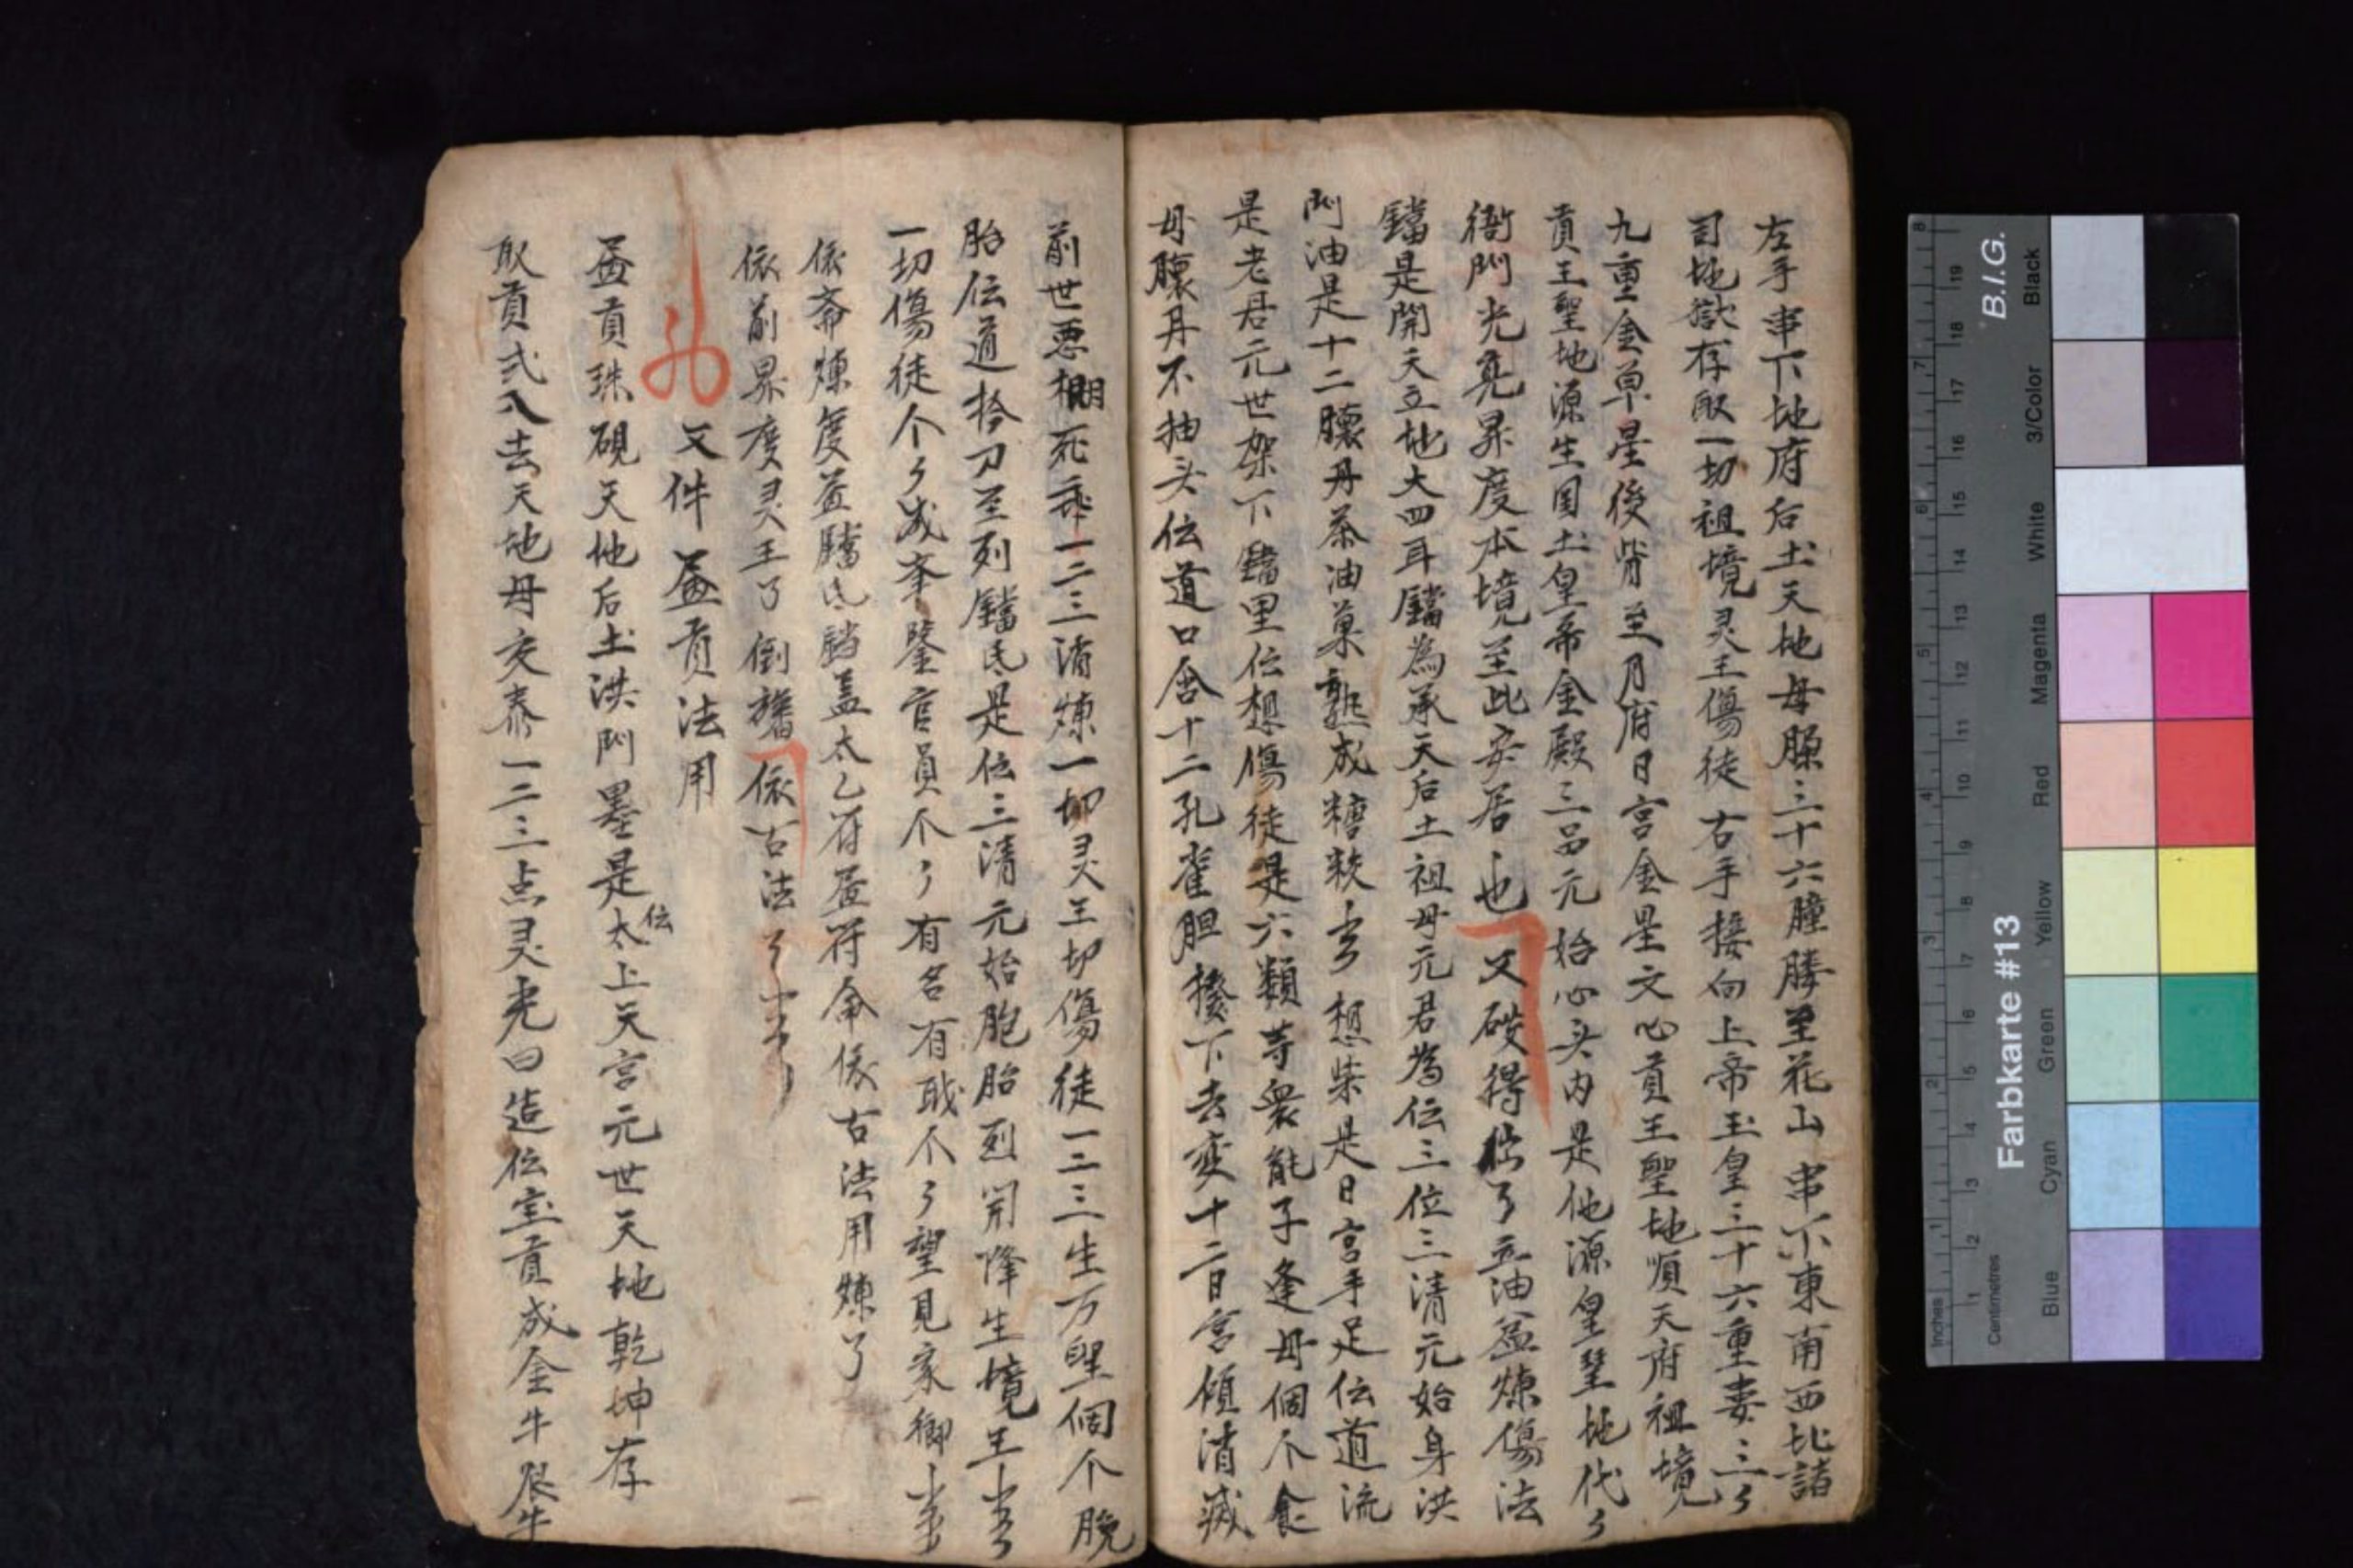 左手串下地府后土天地母脲三十六朣勝至花山串不東南西北諸
司地獄存取一切祖境灵王傷徒右手接向上帝玉皇三十六重妻三了
九重金单星後背至月府日宮金星文心貢王聖地順天府祖境
貢王聖地源生国土皇帝金殿三品元始心头内是他源皇聖地代了
衙門光亮昇度本境至此安居也又破得了立油盆煉傷法
鐺是開天立地大四耳鐺為承天后土祖母元君為伝三位三清元始身洪
門油是十二膿丹茶油菓熟成糖想柴是日宮手足伝道流
是老君元世架下鐺里伝想傷徒是六類等衆能子逢母個不食
母膿丹不抽头伝道口含十二孔雀胆下去変十二日宮傾清滅
前世悪棚死一二三清煉一切灵王切傷徒一二三生万聖個个脫
胎伝道拾刀至列鐺是伝三清元始胞胎列開降生境王
一切傷徒个了官員不了有名有职不了望見家鄉
依斋煉度盖太乙符符命依古法用煉了
依前昇度灵王了倒旛依古法了
又件盖貢法用
盖貢珠硯天地后土洪門墨是伝太上天宮元世天地乾坤存
取貢弍八去天地母交泰一二三点灵光曰造伝宝貢成金牛銀牛
Inches
Centimetres
Farbkarte #13
B.I.G.
Blue
Cyan
Green
Yellow
Red
Magenta
White
3/Color
Black